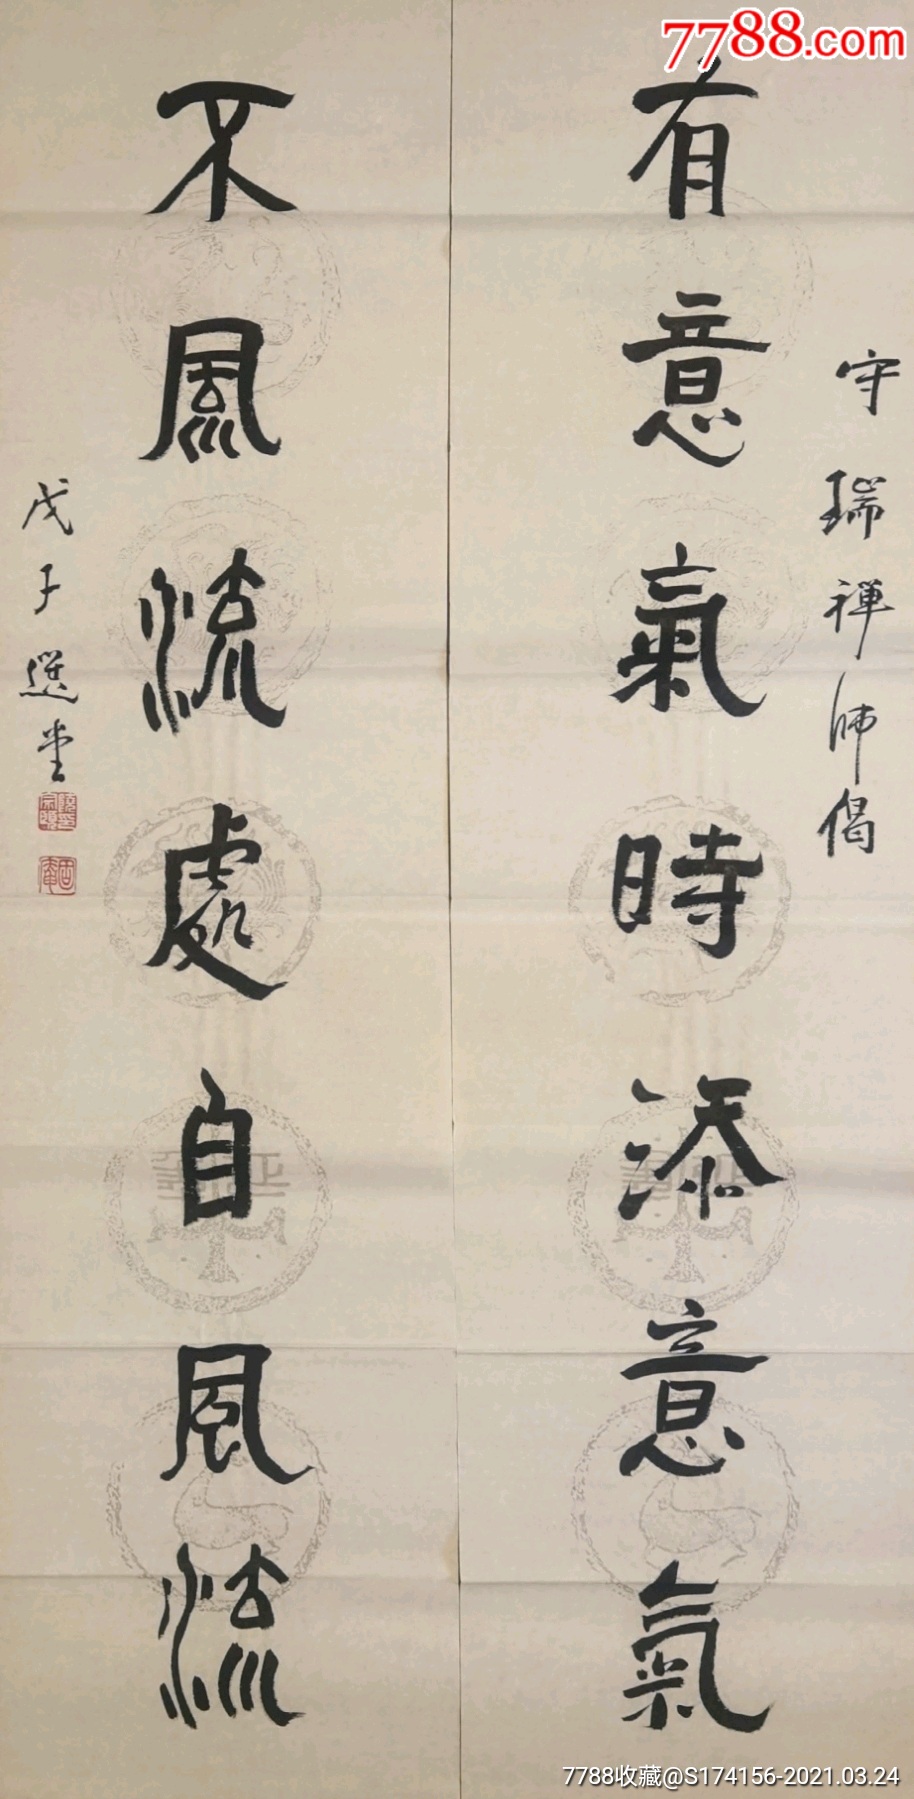 7788.com
有意氣時添意氣
守瑞禅师偈
不風流處自風流
戊子選堂
7788收藏@S174156-2021.03.24